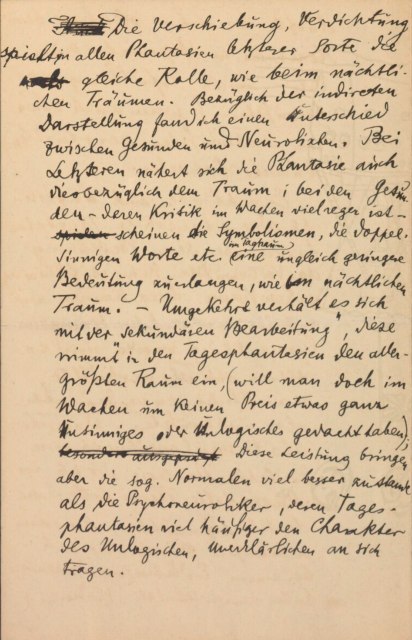 Die Verschiebung, Verdichtung
spielt in allen Phantasien letzterer Sorte die
gleiche Rolle, wie beim nächtli-
chen Träumen. Bezüglich der indirecten
Darstellung fand ich einen Unterschied
zwischen Gesunden und Neurotikern. Bei
Letzteren nähert sich die Phantasie auch
diesbezüglich dem Traum; bei den Gesun-
den – deren Kritik im Wachen viel reger ist –
scheinen die Symbolismen, die doppel-
sinnigen Worte etc. im Tagtraum eine ungleich geringere
Bedeutung zu erlangen, wie im nächtlichen
Traum. – Umgekehrt verhält es sich
mit der sekundären Bearbeitung", diese
nimmt in den Tagesphantasien den aller-
größten Raum ein, (will man doch im
Wachen um keinen Preis etwas ganz
Unsinniges oder Unlogisches gedacht haben);
besonders ausgeprägt Diese Leistung bringen
aber die sog. Normalen viel besser zustande
als die Psychoneurotiker, deren Tages-
phantasien viel häufiger den Charakter
des Unlogischen, Unerklärlichen an sich
tragen.